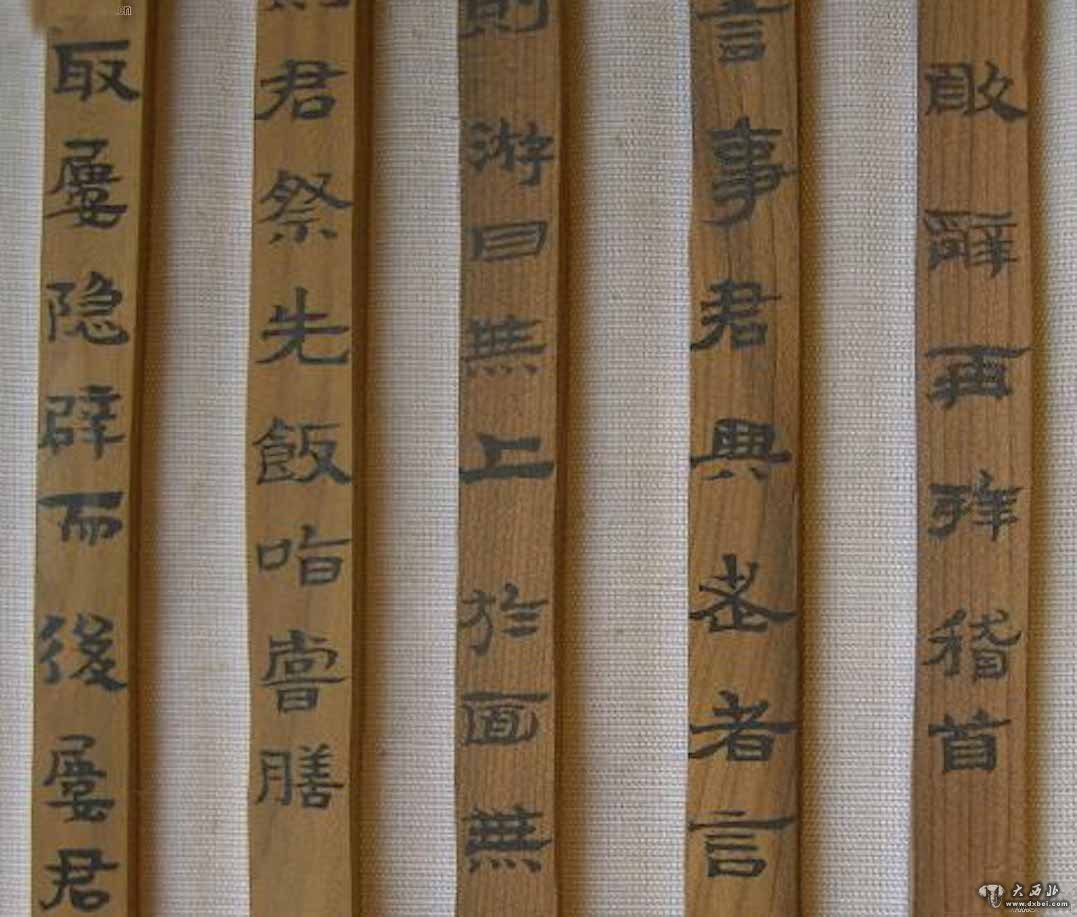 敢辭再拜稽首
言事君與老者言
則游目無上於面無
則君祭先飯嘗膳
取屨隱辟而後屨君
.cn
大西北
www.dxbei.com